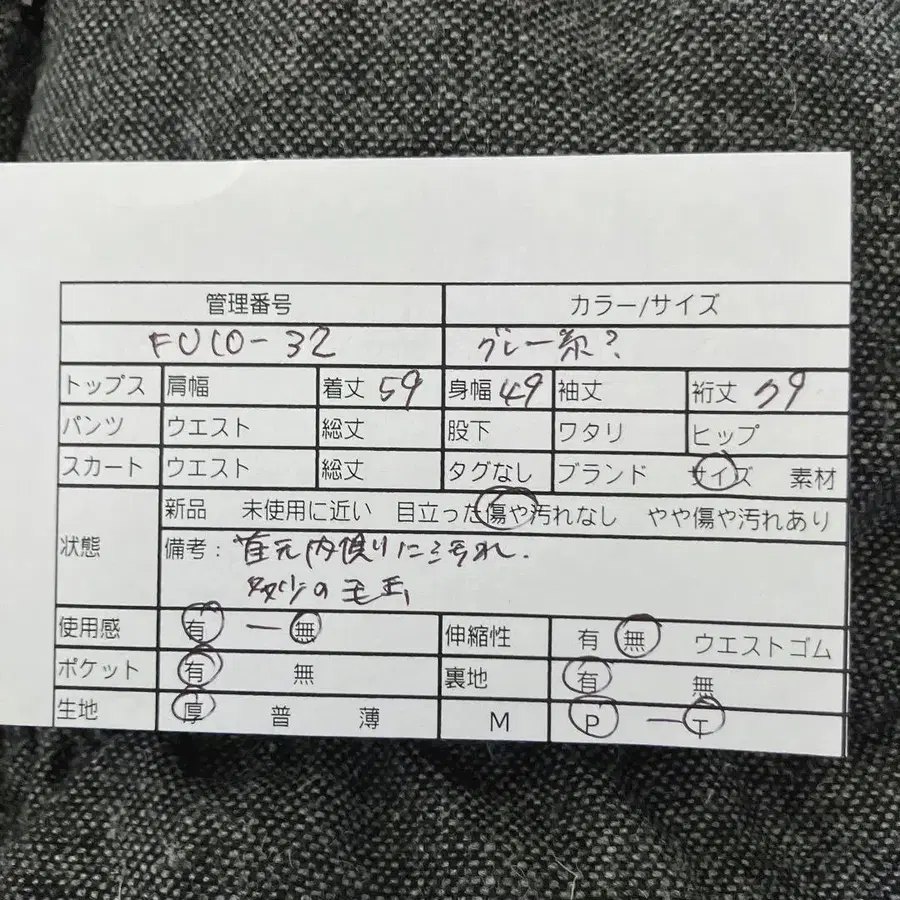 管理番号 カラー/サイズ
FUCO-32 グレー系?
トップス 肩幅 着丈 59 身幅 49 袖丈 裄丈 79
パンツ ウエスト 総丈 股下 ワタリ ヒップ
スカート ウエスト 総丈 タグなし ブランド サイズ 素材
状態 新品 未使用に近い 目立った傷や汚れなし やや傷や汚れあり
備考: 首元内側りに汚れ.
多少の毛玉
使用感 有 ー 無 伸縮性 有 無 ウエストゴム
ポケット 有 無 裏地 有 無
生地 厚 普 薄 M P ー T